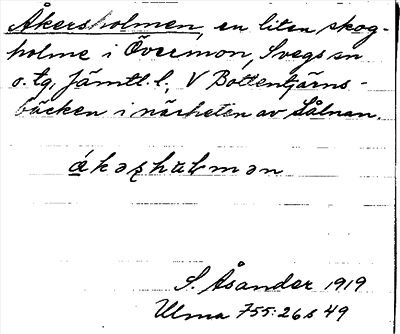 Åkersholmen, en liten skog-
holme i Övermon, Svegs sn
o. tg, Jämtl. l. V Bottentjärns-
bäcken i närheten av Sålnan.
ákəşhωlmən
S. Åsander 1919
Ulma 755:26 s 49